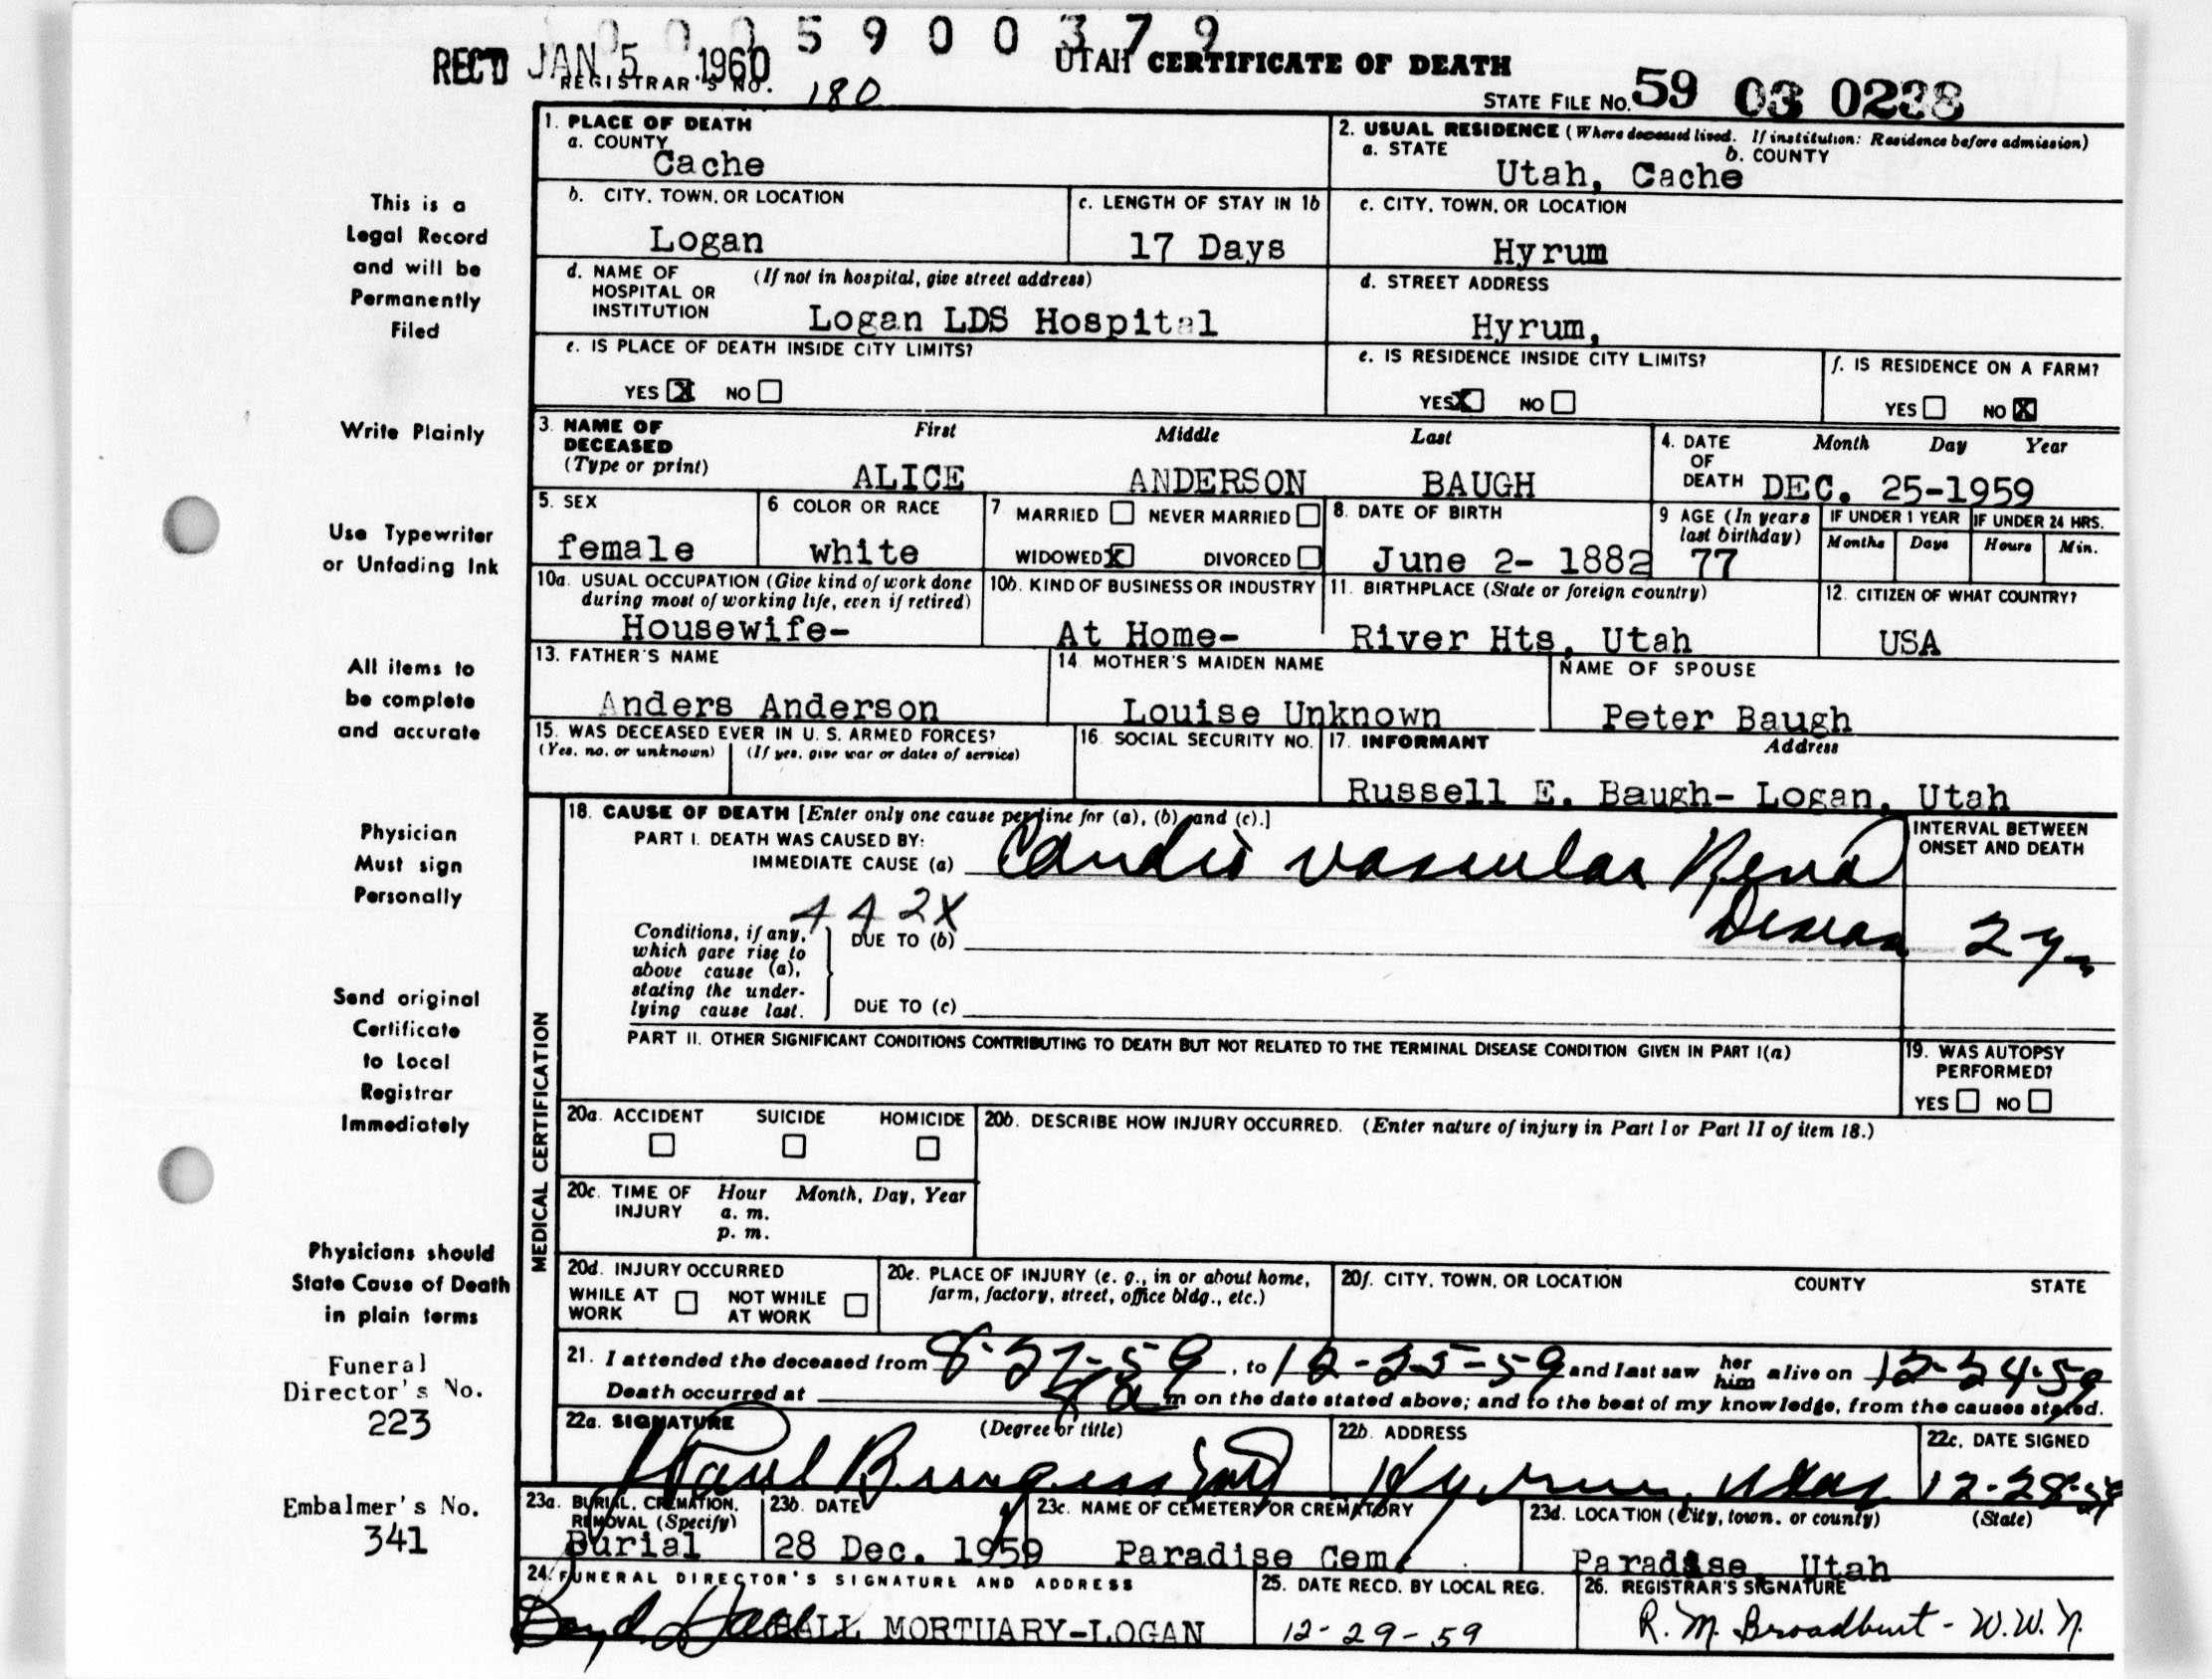 0 0 0 5 9 0 0 3 7 9
REC'D JAN 5 1960
UTAH CERTIFICATE OF DEATH
REGISTRAR'S NO. 180
STATE FILE NO. 59 03 0238
1. PLACE OF DEATH
a. COUNTY
Cache
2. USUAL RESIDENCE (Where deceased lived. If institution: Residence before admission)
a. STATE b. COUNTY
Utah, Cache
b. CITY, TOWN, OR LOCATION
Logan
c. LENGTH OF STAY IN 1b
17 Days
c. CITY, TOWN, OR LOCATION
Hyrum
d. NAME OF HOSPITAL OR INSTITUTION (If not in hospital, give street address)
Logan LDS Hospital
d. STREET ADDRESS
Hyrum,
e. IS PLACE OF DEATH INSIDE CITY LIMITS?
YES X NO
e. IS RESIDENCE INSIDE CITY LIMITS?
YES X NO
f. IS RESIDENCE ON A FARM?
YES NO X
3. NAME OF DECEASED (Type or print)
First Middle Last
ALICE ANDERSON BAUGH
4. DATE OF DEATH
Month Day Year
DEC. 25-1959
5. SEX
female
6 COLOR OR RACE
white
7 MARRIED NEVER MARRIED
WIDOWED X DIVORCED
8. DATE OF BIRTH
June 2- 1882
9 AGE (In years last birthday)
77
IF UNDER 1 YEAR
Months Days
IF UNDER 24 HRS.
Hours Min.
10a. USUAL OCCUPATION (Give kind of work done during most of working life, even if retired)
Housewife-
10b. KIND OF BUSINESS OR INDUSTRY
At Home-
11. BIRTHPLACE (State or foreign country)
River Hts, Utah
12. CITIZEN OF WHAT COUNTRY?
USA
13. FATHER'S NAME
Anders Anderson
14. MOTHER'S MAIDEN NAME
Louise Unknown
NAME OF SPOUSE
Peter Baugh
15. WAS DECEASED EVER IN U. S. ARMED FORCES?
(Yes, no, or unknown) (If yes, give war or dates of service)
16. SOCIAL SECURITY NO.
17. INFORMANT Address
Russell E. Baugh- Logan, Utah
MEDICAL CERTIFICATION
18. CAUSE OF DEATH [Enter only one cause per line for (a), (b), and (c).]
PART I. DEATH WAS CAUSED BY:
IMMEDIATE CAUSE (a) Cardio vascular Renal
Disease
INTERVAL BETWEEN ONSET AND DEATH
2 yrs
442X
Conditions, if any, which gave rise to above cause (a), stating the underlying cause last.
DUE TO (b)
DUE TO (c)
PART II. OTHER SIGNIFICANT CONDITIONS CONTRIBUTING TO DEATH BUT NOT RELATED TO THE TERMINAL DISEASE CONDITION GIVEN IN PART I(a)
19. WAS AUTOPSY PERFORMED?
YES NO
20a. ACCIDENT SUICIDE HOMICIDE
20b. DESCRIBE HOW INJURY OCCURRED. (Enter nature of injury in Part I or Part II of item 18.)
20c. TIME OF INJURY Hour Month, Day, Year
a. m.
p. m.
20d. INJURY OCCURRED
WHILE AT WORK NOT WHILE AT WORK
20e. PLACE OF INJURY (e. g., in or about home, farm, factory, street, office bldg., etc.)
20f. CITY, TOWN, OR LOCATION COUNTY STATE
21. I attended the deceased from 8-27-59, to 12-25-59 and last saw her him alive on 12-24-59
Death occurred at 4 a m on the date stated above; and to the best of my knowledge, from the causes stated.
22a. SIGNATURE (Degree or title)
Paul Burgess MD
22b. ADDRESS
Hyrum, Utah
22c. DATE SIGNED
12-28-59
23a. BURIAL, CREMATION, REMOVAL (Specify)
Burial
23b. DATE
28 Dec. 1959
23c. NAME OF CEMETERY OR CREMATORY
Paradise Cem.
23d. LOCATION (City, town, or county) (State)
Paradise, Utah
24. FUNERAL DIRECTOR'S SIGNATURE AND ADDRESS
Boyd Hall HALL MORTUARY-LOGAN
25. DATE RECD. BY LOCAL REG.
12-29-59
26. REGISTRAR'S SIGNATURE
R. M. Broadbent - W.W.N.
This is a
Legal Record
and will be
Permanently
Filed
Write Plainly
Use Typewriter
or Unfading Ink
All items to
be complete
and accurate
Physician
Must sign
Personally
Send original
Certificate
to Local
Registrar
Immediately
Physicians should
State Cause of Death
in plain terms
Funeral
Director's No.
223
Embalmer's No.
341